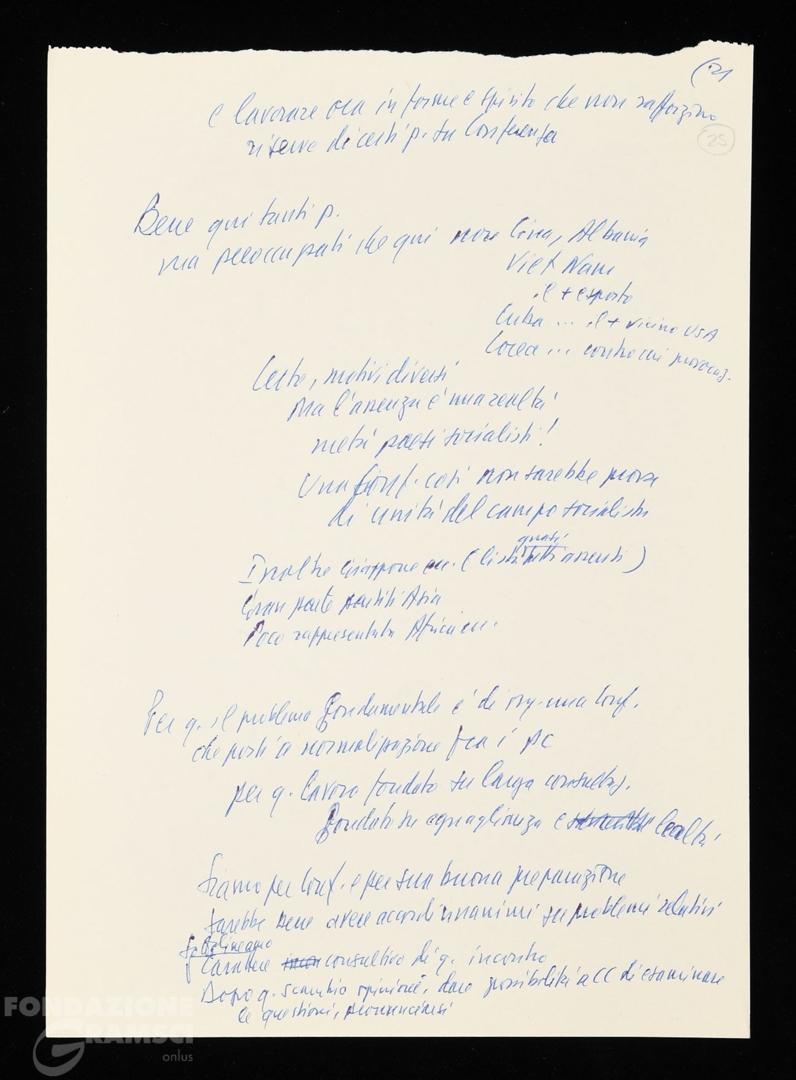 (21
25
e lavorare ora in forme e spirito che non rafforzino
riserve di certi p. su Conferenza
Bene qui tanti p.
ma preoccupati che qui non Cina, Albania
Viet Nam
il + esposto
Cuba ... il + vicino USA
Corea ... continui provocaz.
Certo, motivi diversi
Ma l'assenza è una realtà
metà paesi socialisti!
Una Conf. così non sarebbe prova
di unità del campo socialista
Inoltre Giappone ecc. ( quasi tutti assenti )
Gran parte partiti Asia
Poco rappresentata Africa ecc.
Per q. il problema fondamentale è di org. una Conf.
che porti a normalizzazione fra i PC
per q. lavoro fondato su larga consultaz.
fondato su eguaglianza e lealtà
Siamo per Conf. e per sua buona preparazione
Sarebbe bene avere accordi unanimi su problemi relativi
Sottolineamo
Carattere consultivo di q. incontro
Dopo q. scambio opinioni, dare possibilità a CC di esaminare
le questioni, pronunciarsi
FONDAZIONE
GRAMSCI
onlus